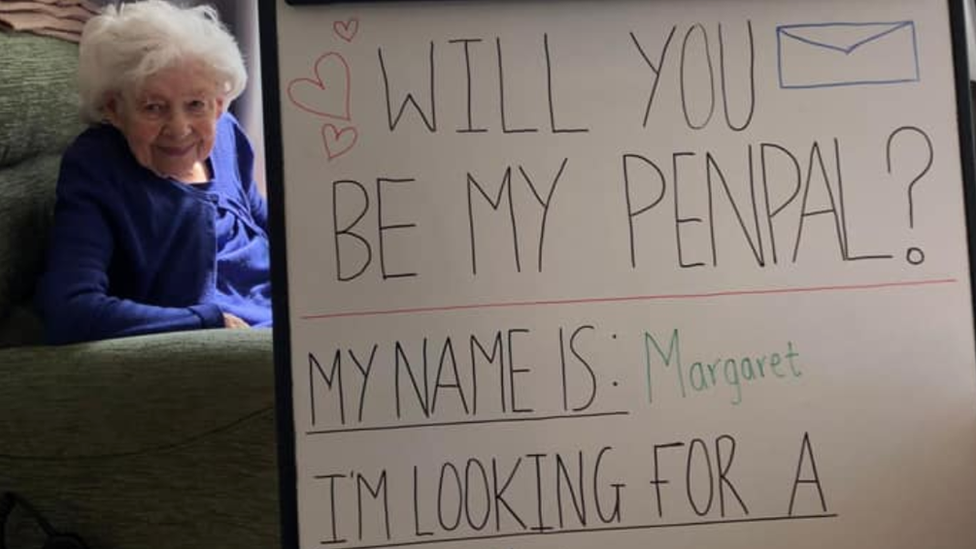 WILL YOU
BE MY PENPAL?
MY NAME IS: Margaret
I'M LOOKING FOR A